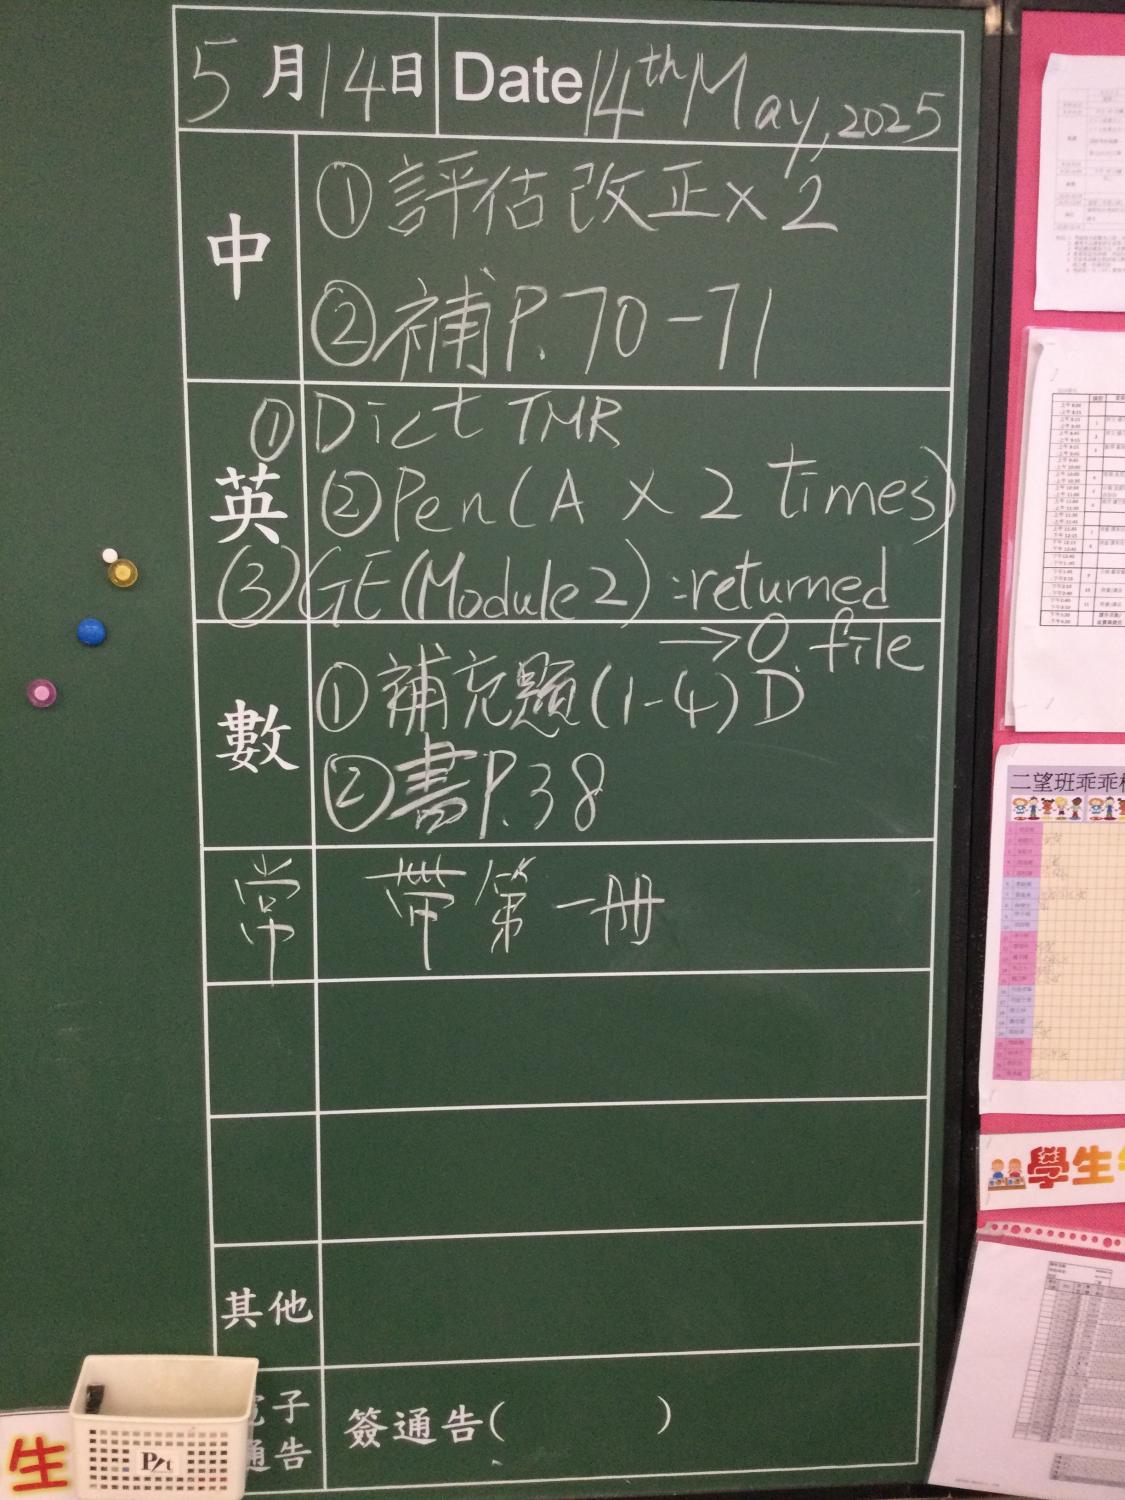 5月14日 Date 14th May, 2025
中
①評估改正x2
②補P.70-71
英
①Dict TMR
②Pen(A x 2 times)
③GE(Module2):returned
→O.file
數
①補充題(1-4)D
②書P.38
常 帶第一冊
其他
子
通告
簽通告( )
生
二望班乖乖
學生